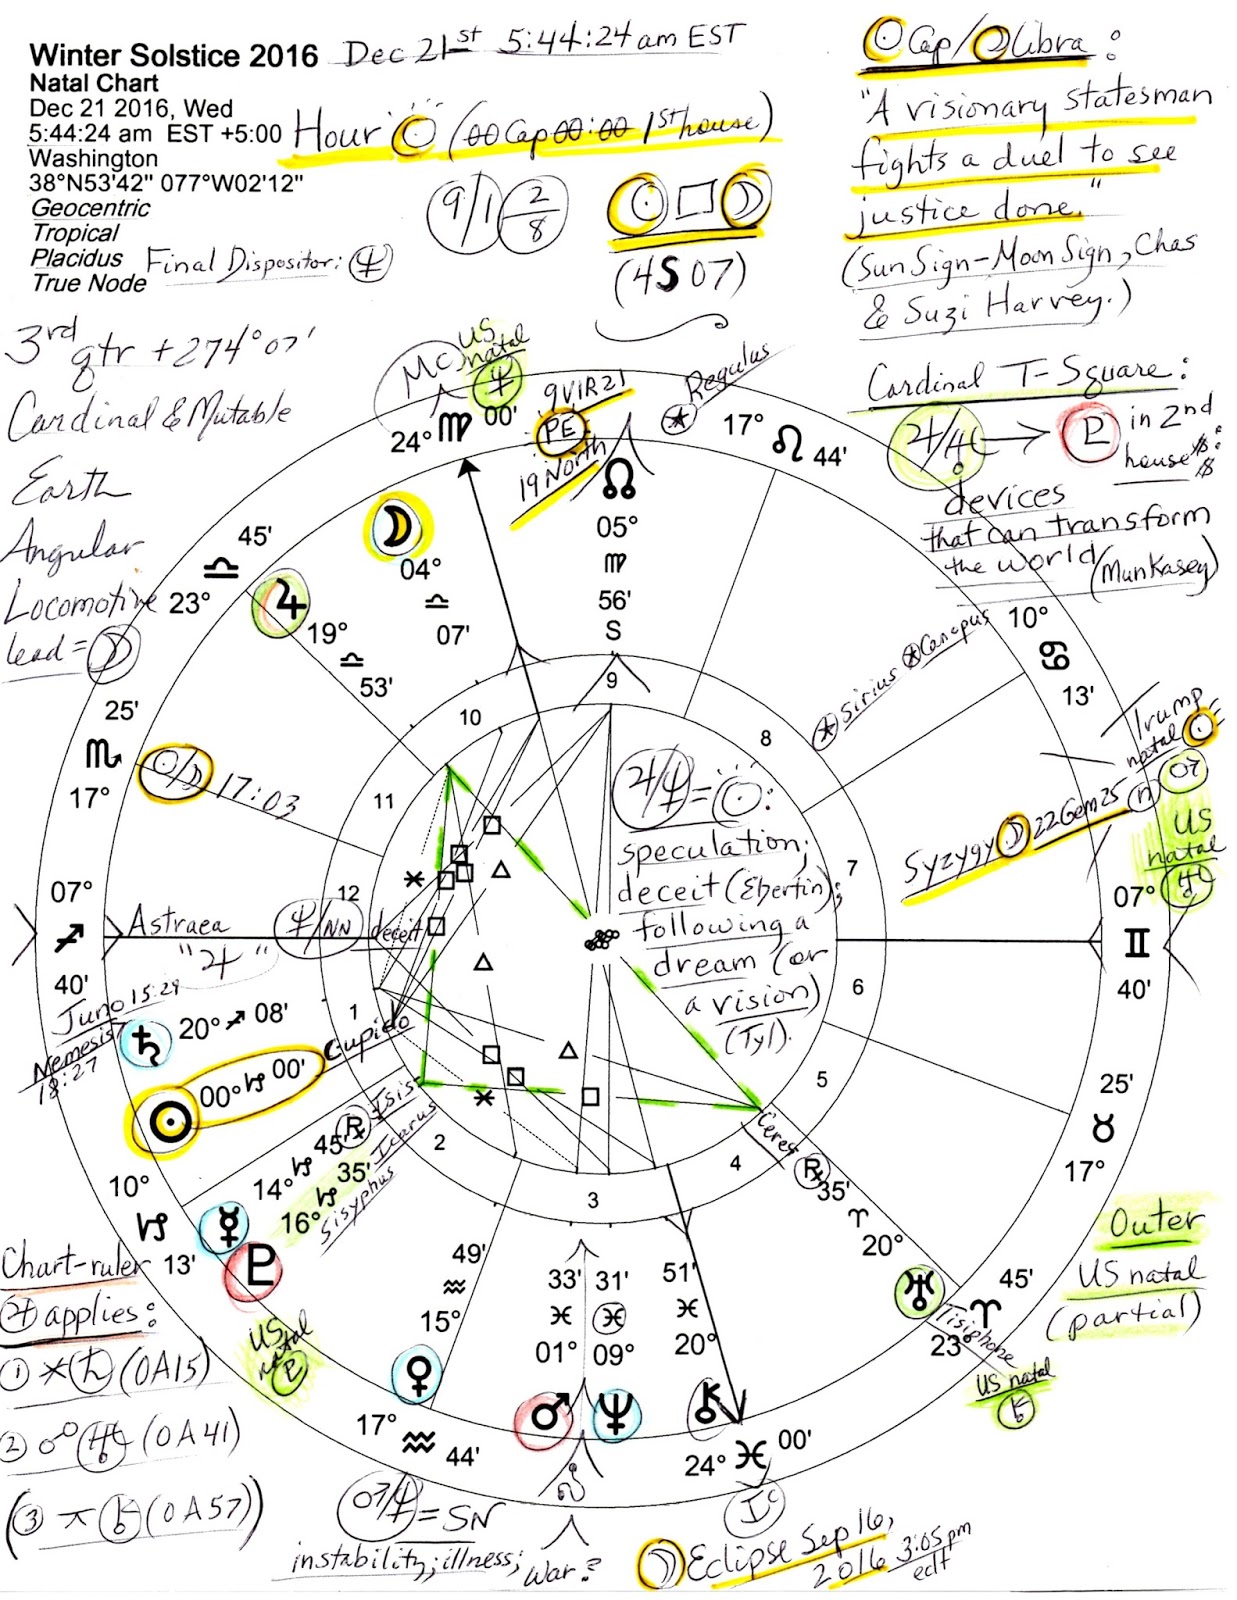 Winter Solstice 2016 Dec 21st 5:44:24 am EST
Natal Chart
Dec 21 2016, Wed
5:44:24 am EST +5:00 Hour ☉ (00Cap00:00 1st house)
Washington
38°N53'42" 077°W02'12"
Geocentric
Tropical
Placidus Final Dispositor: ♆
True Node
9/1 2/8
☉□☽
(4S07)
☉Cap/☽Libra:
"A visionary statesman
fights a duel to see
justice done."
(Sun Sign-Moon Sign, Chas
& Suzi Harvey.)
3rd qtr +274°07'
Cardinal & Mutable
Earth
Angular
Locomotive
lead = ☽
Cardinal T-Square:
♃/♅ → ♇ in 2nd
house $:$
devices
that can transform
the world (Munkasey)
MC US natal ♆
24° ♍ 00'
9VIR21
PE
19 North
Regulus
17° ♌ 44'
☊
05°
♍
56'
S
45'
♎
23°
☽
04°
♎
07'
♃
19°
♎
53'
Sirius Canopus
10°
♋
13'
Trump
natal ☉
♂
US
natal
♅
Syzygy ☽ 22Gem25
25'
♏
17°
☉/☽ 17:03
9
10
8
11
7
12
6
1
5
2
4
3
♃/♆=☉:
speculation;
deceit (Ebertin);
following a
dream (or
a vision)
(Tyl).
07°
♐
40'
Astraea
"♃"
♆/NN deceit
07°
♊
40'
Juno 15:29
Nemesis
18:27
♄ 20° ♐ 08'
Cupido
☉ 00° ♑ 00'
☿ 14° ♑ 45' ℞ Isis
♇ 16° ♑ 35' Icarus
Sisyphus
10°
♑
13'
25'
♉
17°
Ceres
℞
35'
♈
20°
♅
Tisiphone
45'
♈
23°
US natal
⚷
Outer
US natal
(partial)
Chart-ruler
♃ applies:
① ⚹ ♄ (0A15)
② ☍ ♅ (0A41)
(③ ⚻ ⚷ (0A57))
US
natal
♇
49'
♒
15°
♀
17° ♒ 44'
33'
♓
01°
♂
31'
♓
09°
♆
51'
♓
20°
⚷
24° ♓ 00'
IC
♂/♆=SN
instability; illness; war?
☽Eclipse Sep 16,
2016 3:05pm
edt